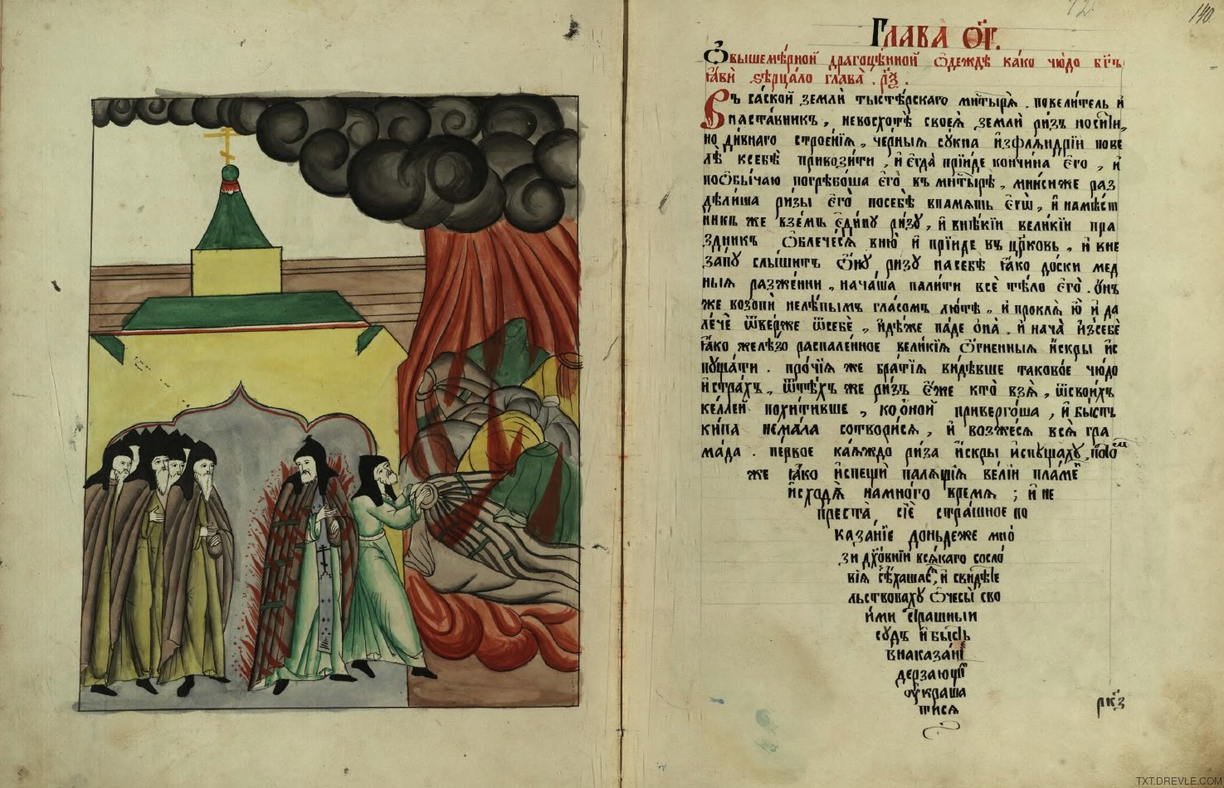 72
140
Глава ог҃.
Ѡвышемѣ́рной драгоцѣ́нной ѻ҆де́ждѣ ка́ко чю́до бы́сть
ꙗ҆вѝ ѕе́рцало глава̀. рѯ҃.
Въ са́ской землѝ тыстѣ́рскаго мнⷭ҇тырѧ̀. повели́тель и҆
наста́вникъ, невосхотѣ̀ своеѧ̀ землѝ ри́зъ носи́ти,
но ди́внаго строе́нїѧ, че́рныѧ сꙋ́кна и҆зфлѧндрі́и пове
лѣ̀ ксебѣ̀ привози́ти, и҆ є҆гда̀ прїи́де кончи́на є҆гѡ̀, и҆
поѻбы́чаю погребо́ша є҆го̀ въ мнⷭ҇тырѣ̀, мни́си же раз
дѣли́ша ри́зы є҆гѡ̀ посебѣ̀ впа́мѧть є҆гѡ̀, и҆ намѣ́ст
никъ же взе́мъ є҆ди́нꙋ ри́зꙋ, и҆ внѣ́кїи вели́кїи пра
здникъ ѻ҆блече́сѧ вню̀ и҆ прїи́де въ цр҃ковь, и҆ вне
за́пꙋ слы́шитъ ѻ҆́нꙋ ри́зꙋ насебѣ̀ ꙗ҆́ко доскѝ мѣд
ныѧ разже́нни, нача́ша пали́ти всѐ тѣ́ло є҆гѡ̀. ѻ҆́нъ
же возопѝ нелѣ́пымъ гла́сомъ лю́тѣ, и҆ проклѧ̀ ю҆̀ и҆ да
ле́че ѿве́рже ѿсебѐ, и҆дѣ́же падѐ ѻ҆на̀. и҆ нача̀ и҆зсебѐ
ꙗ҆́ко желѣ́зо распале́нное вели́кїѧ ѻ҆́гненныѧ и҆́скры и҆с
пꙋща́ти. про́чїѧ же бра́тїѧ ви́дѣвше таково́е чю́до
и҆ стра́хъ, ѿтѣ́хъ же ри́зъ є҆́же кто̀ взѧ̀, ѿсвои́хъ
ке́ллей похи́тивше, ко ѻ҆́ной приверго́ша, и҆ бы́сть
ки́па нема́ла сотвори́сѧ, и҆ возже́сѧ всѧ̀ гра
ма́да. пе́рвое ка́ѧждо ри́за и҆́скры и҆спꙋща́хꙋ, пото́м
же ꙗ҆́ко и҆спе́щи палѧ́щїѧ ве́лїй пла́мѣ
и҆сходѧ̀ намно́го вре́мѧ; и҆ не
преста̀, сїѐ стра́шное по
каза́нїе до́ньдеже мно́
зи дх҃о́внїи всѧ́каго сосло́
вїѧ съѣ́хашасѧ, и҆ свидѣ́те
льствовахꙋ ѻ҆чесы̀ сво
и́ми стра́шныи
сꙋ́дъ и҆ бы́сть
внаказа́нїе
дерза́ющиⷨ
ᲂу҆краша
тисѧ
рк҃з
TXT.DREVLE.COM